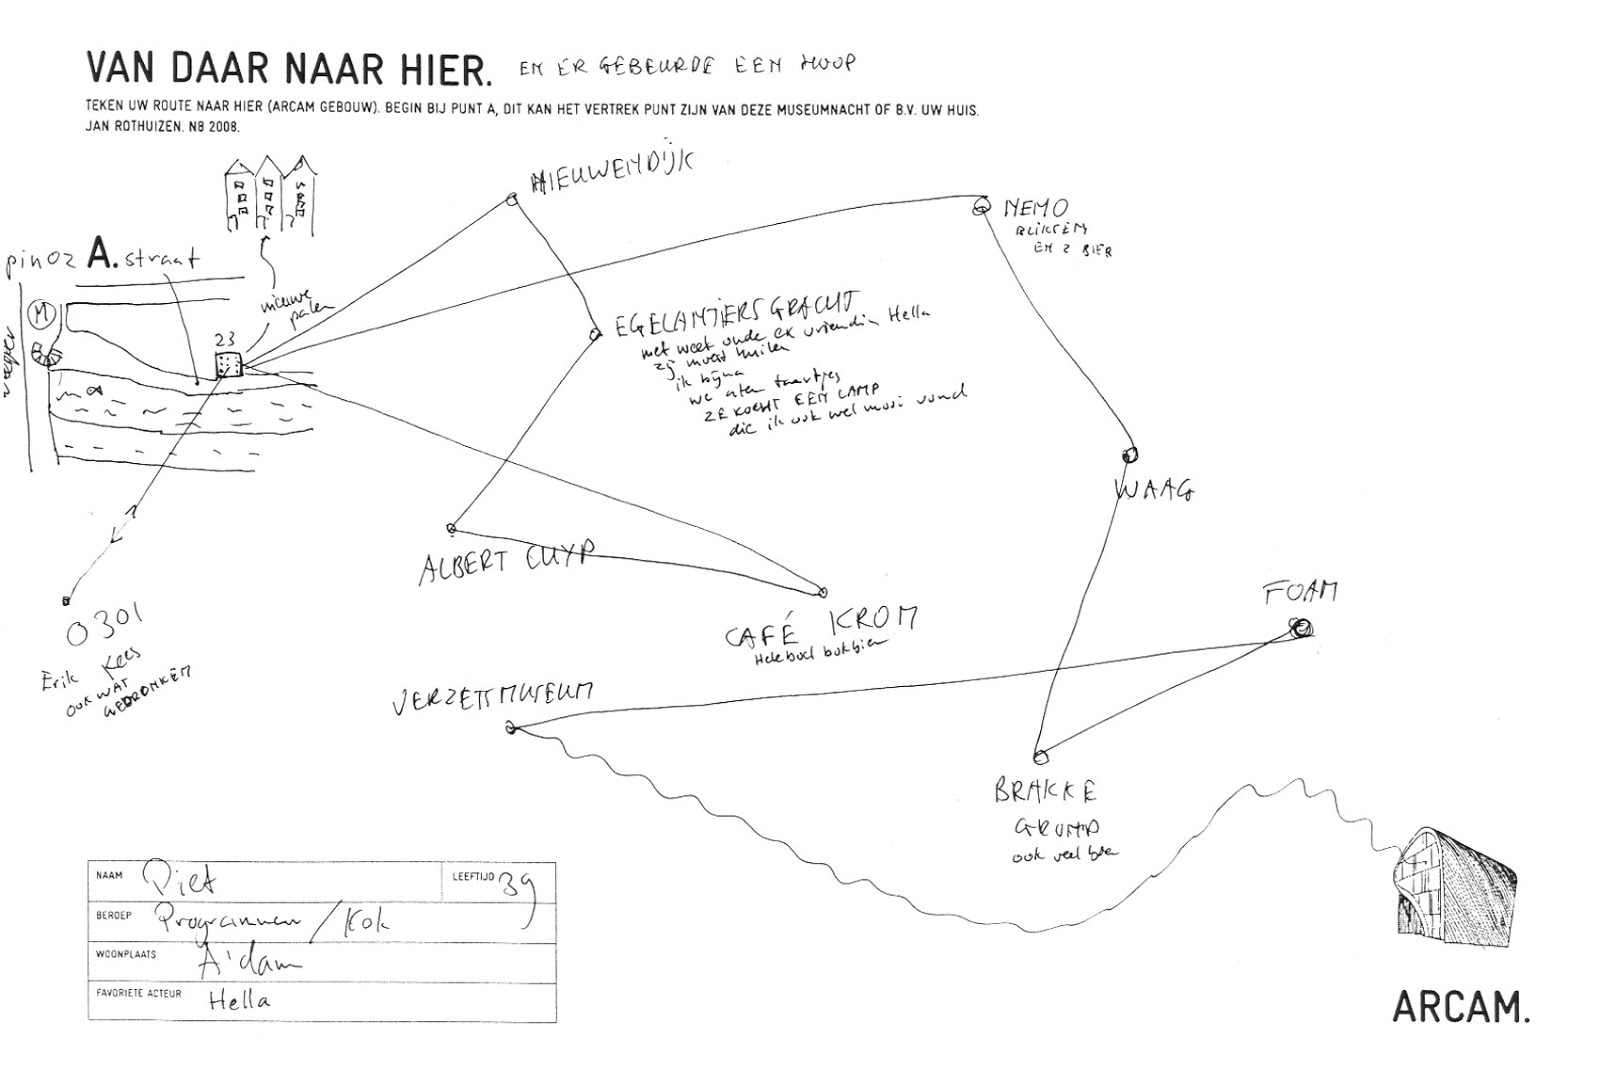 VAN DAAR NAAR HIER. EN ER GEBEURDE EEN HOOP
TEKEN UW ROUTE NAAR HIER (ARCAM GEBOUW). BEGIN BIJ PUNT A, DIT KAN HET VERTREK PUNT ZIJN VAN DEZE MUSEUMNACHT OF B.V. UW HUIS.
JAN ROTHUIZEN. N8 2008.
NIEUWENDIJK
NEMO
BLIKSEM
EN 2 BIER
pinoz A. straat
nieuwe
palen
M
23
EGELANTIERSGRACHT
met weet oude ex vriendin Hella
zij moest huilen
ik bijna
we aten taartjes
ZE KOCHT EEN LAMP
die ik ook wel mooi vond
WAAG
ALBERT CUYP
CAFÉ KROM
Heleboel bokbier
FOAM
0301
Erik Kees
OOK WAT
GEDRONKEN
VERZETSMUSEUM
BRAKKE
GROND
ook veel bier
NAAM Piet
LEEFTIJD 39
BEROEP Programmeur / Kok
WOONPLAATS A'dam
FAVORIETE ACTEUR Hella
ARCAM.